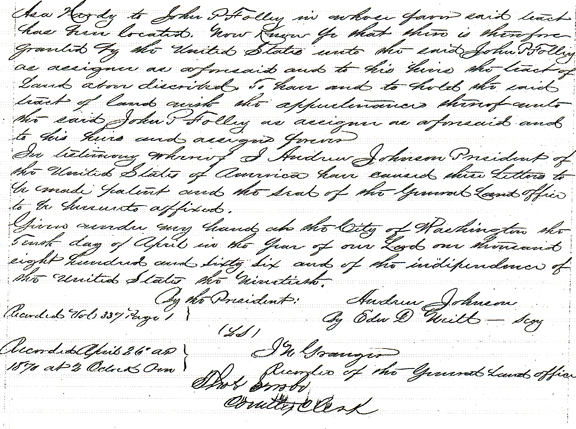 Asa Kerby to John P Folley in whose favor said tract
has been located. Now know ye that there is therefore
granted by the United States unto the said John P Folley
as assignee as aforesaid and to his heirs the tract of
Land above discribed. To have and to hold the said
tract of land with the appurtenances thereof unto
the said John P Folley as assignee as aforesaid and
to his heirs and assigns forever
In testimony whereof I Andrew Johnson President of
the United States of America have caused these Letters to
be made patent and the seal of the General Land office
to be hereunto affixed.
Given under my hand at the City of Washington the
day of April in the Year of our Lord one thousand
eight hundred and sixty six and of the independence of
the United States the Ninetieth.
By the President: Andrew Johnson
Recorded Vol 337 Page 1 By Edw D Neill — Secy
(LS)
Recorded April 26th AD J N Granger
1870 at 2 Oclock Recorder of the General Land office
County Clerk